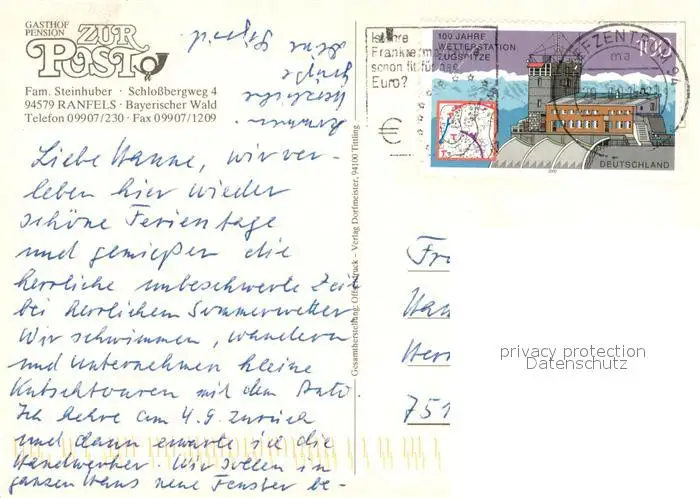 GASTHOF
PENSION
ZUR
POST
Fam. Steinhuber · Schloßbergweg 4
94579 RANFELS · Bayerischer Wald
Telefon 09907/230 · Fax 09907/1209
Liebe Hanne, wir ver-
leben hier wieder
schöne Ferientage
und genießen die
herrliche unbeschwerte Zeit
bei herrlichem Sommerwetter
Wir schwimmen, wandern
und unternehmen kleine
Kutschtouren mit dem Auto.
Ich kehre am 4.9. zurück
und dann erwarte ich die
Handwerker. Wir sollen im
ganzen Haus neue Fenster be-
kommen.
Herzliche
Grüße
Gesamtherstellung: Offsetdruck – Verlag Dorfmeister, 94100 Tittling
Ist Ihre
schon fit für
Euro?
100 JAHRE
WETTERSTATION
ZUGSPITZE
100
DEUTSCHLAND
2000
BRIEFZENTRUM 94
ma
Fr
Han
Her
751
privacy protection
Datenschutz